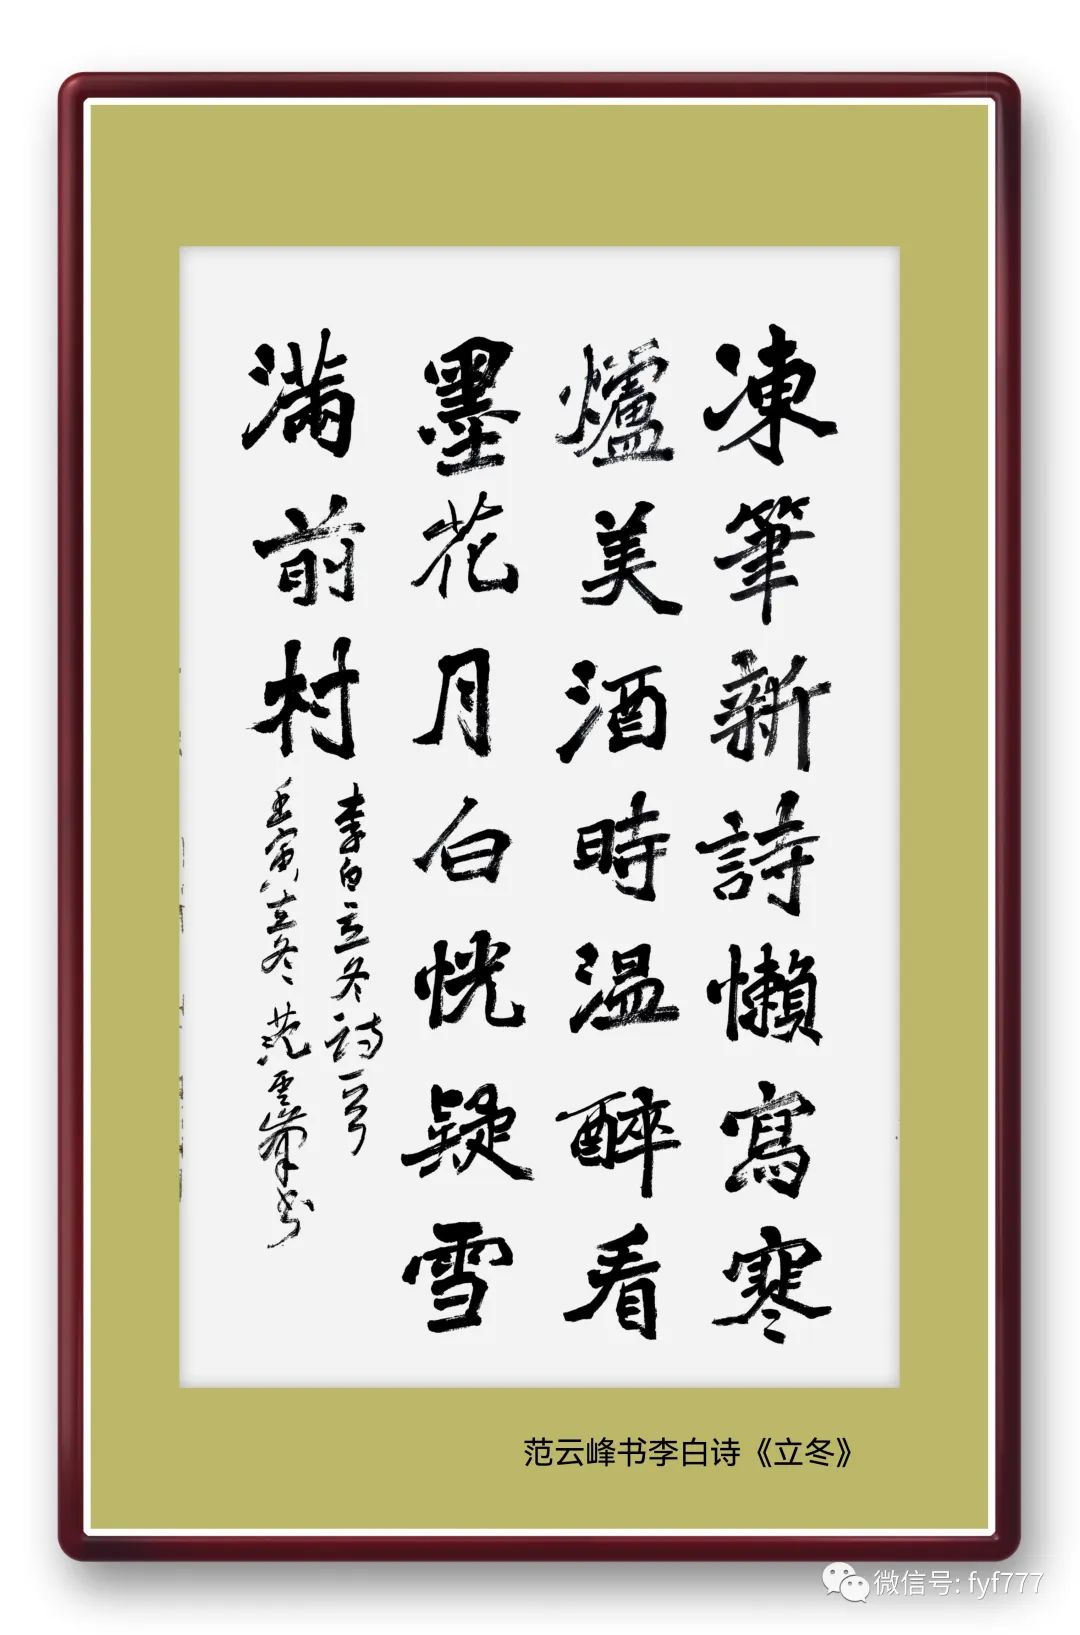 凍筆新詩懶寫寒
爐美酒時温醉看
墨花月白恍疑雪
满前村
李白立冬詩一首
壬寅立冬 范雲峰书
范云峰书李白诗《立冬》
微信号: fyf777